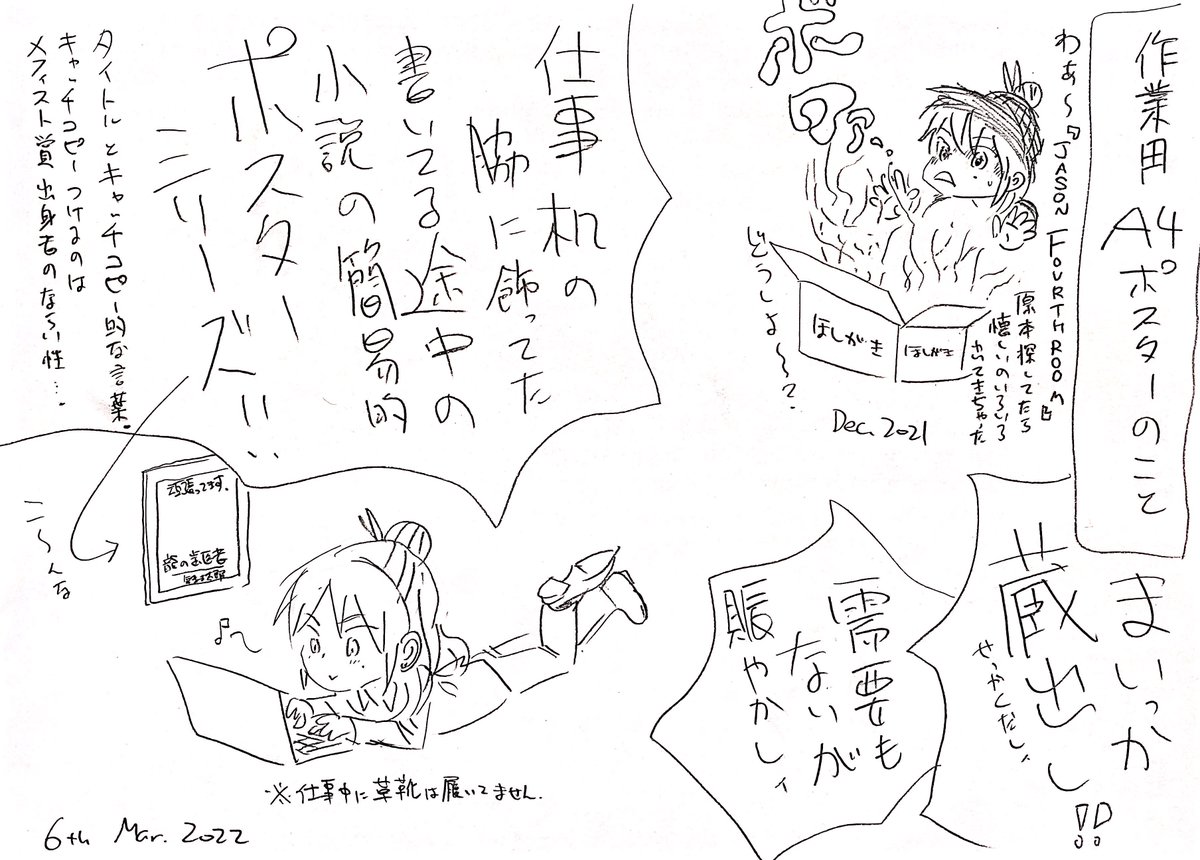 作業用 A4ポスターのこと
わぁ〜『JASON FOURTH ROOM』
原本探してたら
懐しいのいろいろ
でてきちゃった
どうしよ〜?
ほしがき
ほしがき
Dec. 2021
まいっか
蔵出し!!
せっかくだしィ
需要も
ないが
賑やかしィ
仕事机の
脇に飾ってた
書いてる途中の
小説の簡易的
ポスター
ニリーズ!!
タイトルとキャッチコピー的な言葉。
キャッチコピーつけるのは
メフィスト賞出身者のならい性…。
こ〜んな
頑張ってます。
※仕事中に革靴は履いてません。
6th Mar. 2022